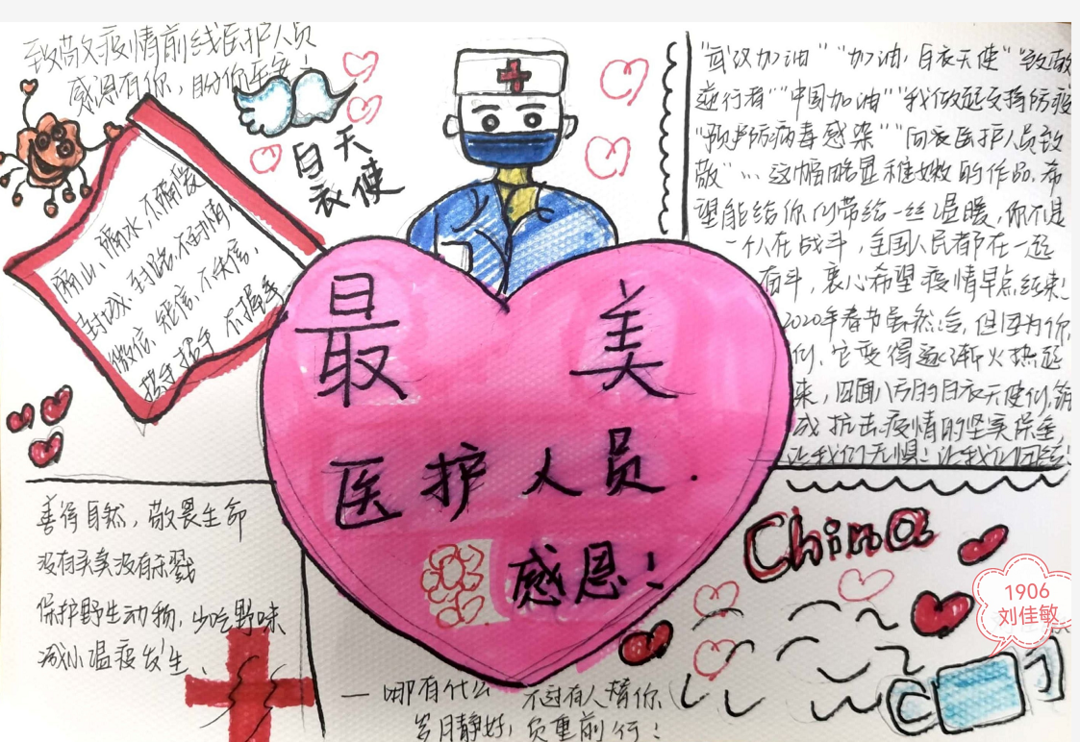 致敬疫情前线医护人员
感恩有你，
白天
衣使
隔山、隔水、不隔爱
封城、封路、不封情
微信、短信、不失信、
招手 招手 不握手
最 美
医护人员.
感恩！
"武汉加油""加油，白衣天使""致敬
逆行者""中国加油""我做起支持防疫
"预严防病毒感染""向衣医护人员致
敬"…这幅略显稚嫩的作品.希
望能给你们带给一丝温暖，你不是
一个人在战斗，全国人民都在一起
奋斗，衷心希望疫情早点结束！
2020年春节虽然冷，但因为你
们、它变得逐渐火热起
来，四面八方的白衣天使们，筑
成抗击疫情的坚实保垒，
让我们无惧！让我们团结！
善得自然，敬畏生命
没有买卖没有杀戮
保护野生动物，少吃野味
减小温疫发生、
China
1906
刘佳敏
一哪有什么 不过有人替你
岁月静好，负重前行！